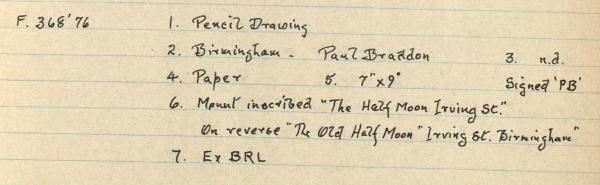 F. 368'76 1. Pencil Drawing
2. Birmingham - Paul Braddon 3. n.d.
4. Paper 5. 7"x9" Signed 'PB'
6. Mount inscribed "The Half Moon Irving St."
On reverse "The Old Half Moon" Irving St. Birmingham"
7. Ex BRL